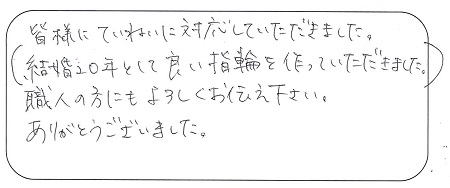 皆様にていねいに対応していただきました。
(結婚20年として良い指輪を作っていただきました。)
職人の方にもよろしくお伝え下さい。
ありがとうございました。